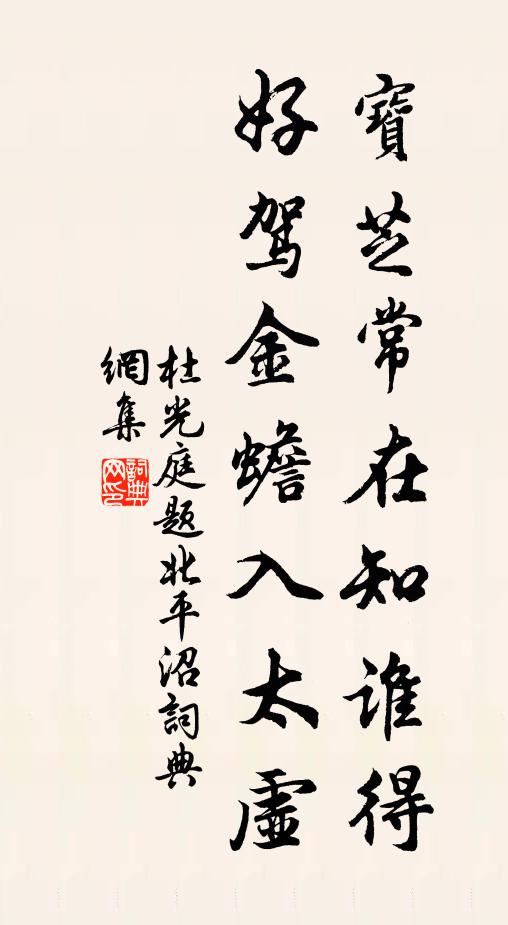 寶芝常在知誰得
好駕金蟾入太虛
杜光庭題北平沼詞典
網集
詞典
网印